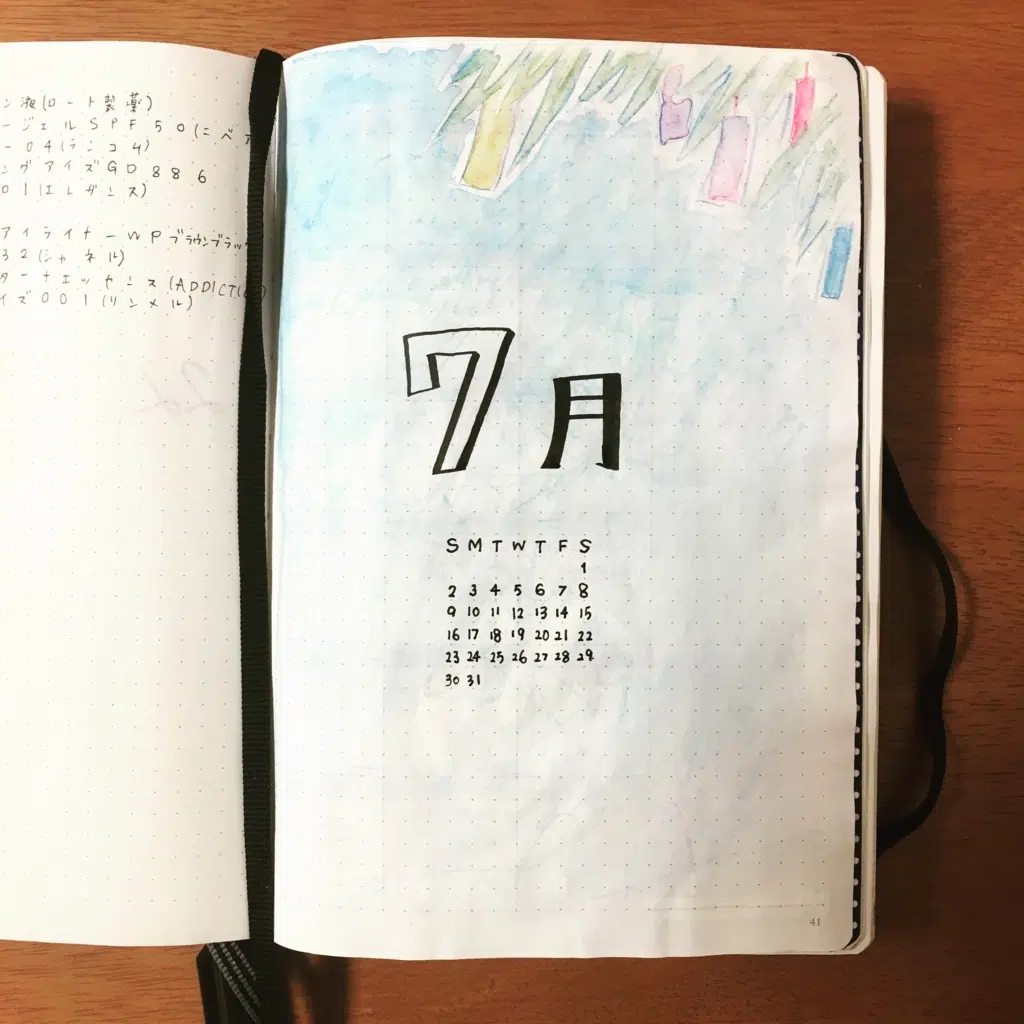 ン液(ロート製薬)
ージェルSPF50(ニベア
ー04(ランコム)
ングアイズGD886
01(エレガンス)
アイライナーWPブラウンブラッ
32(シャネル)
ターナエッセンス(ADDICTIO)
イズ001(リンメル)
7月
S M T W T F S
1
2 3 4 5 6 7 8
9 10 11 12 13 14 15
16 17 18 19 20 21 22
23 24 25 26 27 28 29
30 31
41